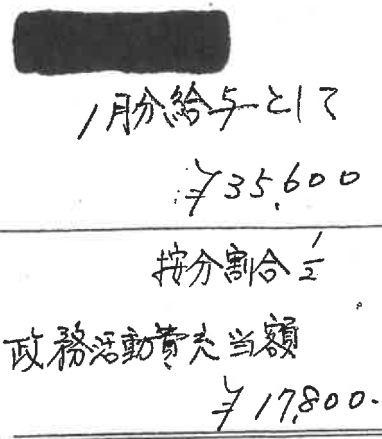 1月分給与として
¥35,600
按分割合 1/2
政務活動費充当額
¥17,800-